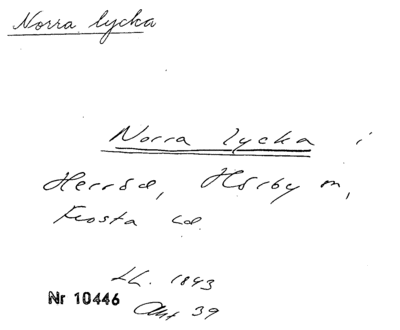 Norra lycka
Norra lycka i
Herröd, Hörby m,
Frosta hd.
LL. 1843
Nr 10446 Akt 39